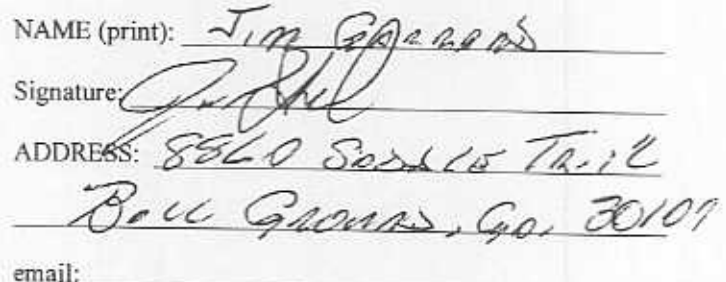 NAME (print): Jim
Signature:
ADDRESS: 8860 Saddle Trail
Ball Ground, Ga. 30107
email: